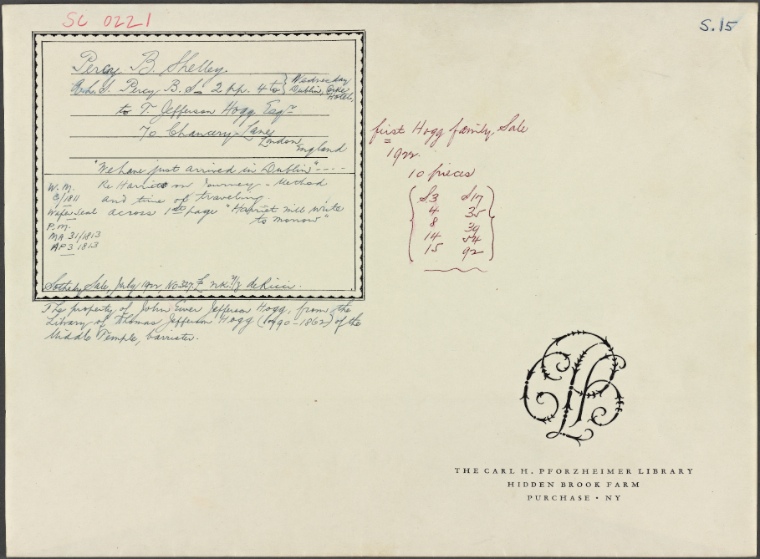 SC 0221
S.15
Percy B. Shelley.
S. Percy B. S. 2 pp. 4to } Wednesday
Dublin, Cork
Hotel,
to T. Jefferson Hogg Esqre
70 Chancery Lane
London
England
"We have just arrived in Dublin" ----
Re Harriet on Journey - Method
and time of traveling
across 1st page "Harriet will write
to morrow"
W. M.
/1811
Wafer Seal
P. M.
MA 31/1813
AP 3 1813
Sotheby Sale, July 1922, No 527 de Ricci.
The property of John Ewer Jefferson Hogg, from the
Library of Thomas Jefferson Hogg ( -1862) of the
Middle Temple, barrister.
first Hogg family Sale
1922.
10 pieces
S3 S17
4 35
8 39
14 54
15 92
THE CARL H. PFORZHEIMER LIBRARY
HIDDEN BROOK FARM
PURCHASE · NY